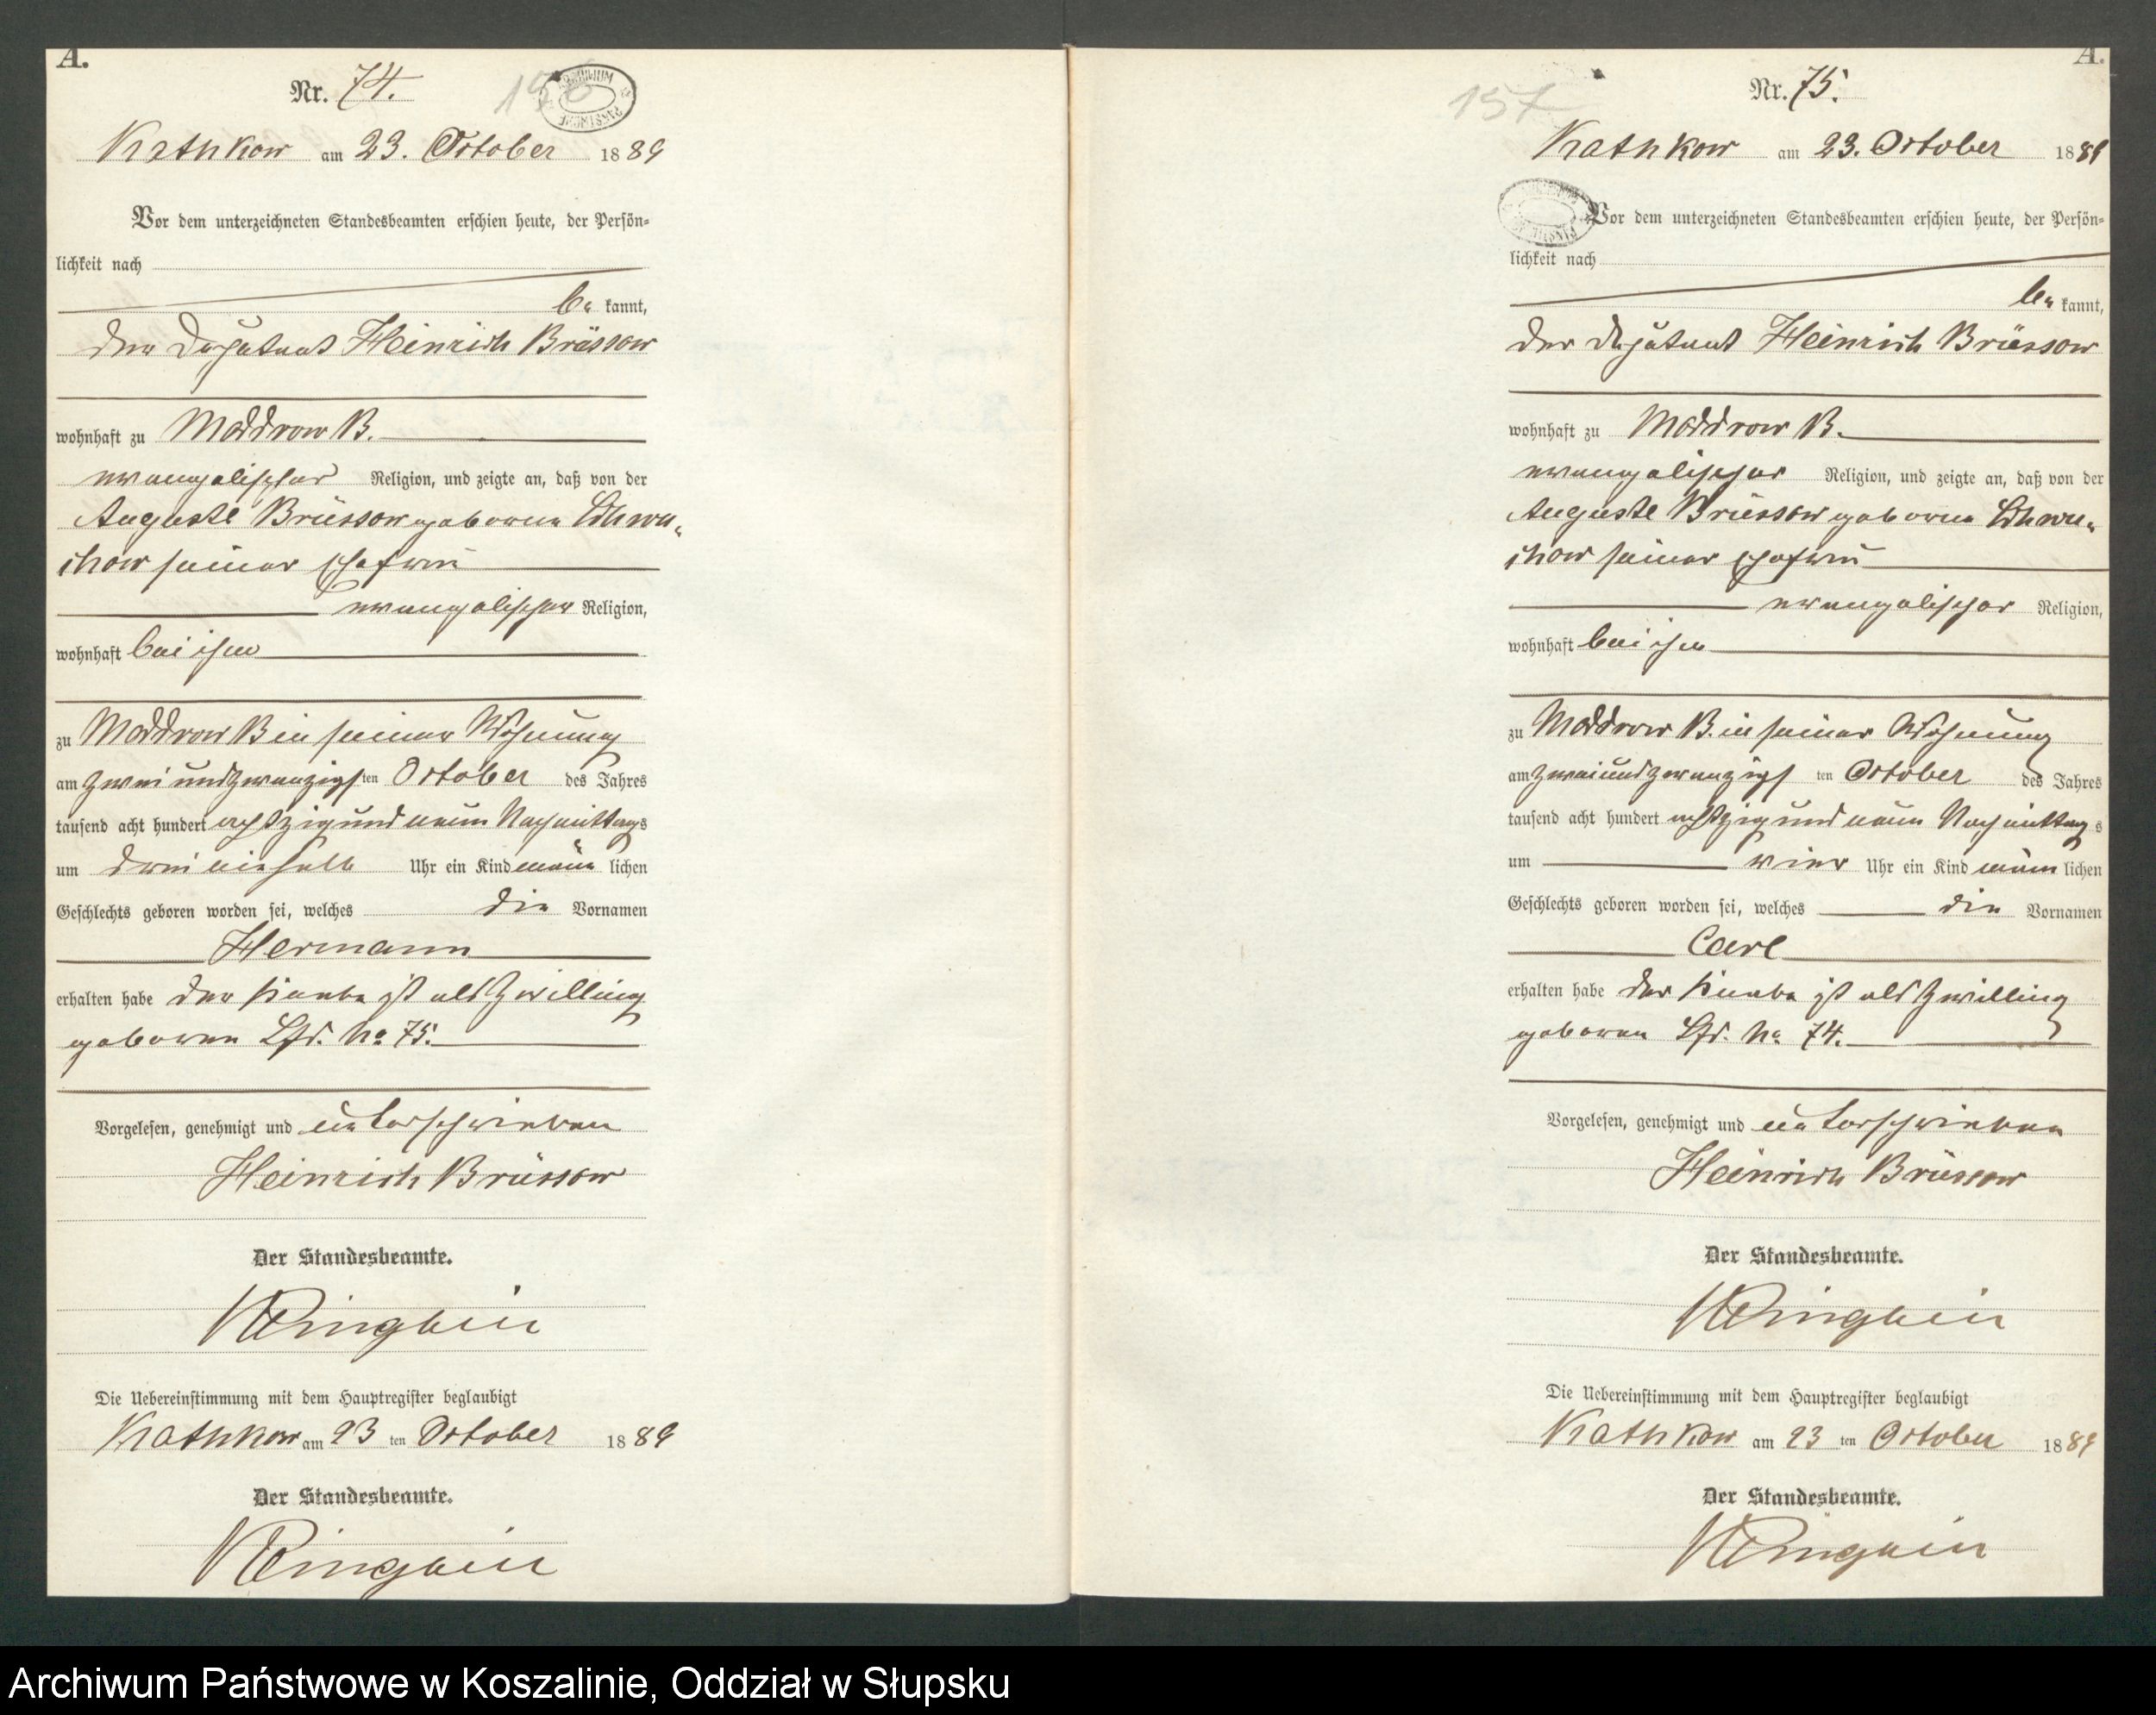 A.
Nr. 74.
Kathkow am 23. October 1889
Vor dem unterzeichneten Standesbeamten erschien heute, der Persön-
lichkeit nach
be kannt,
der Deputant Heinrich Brüssow
wohnhaft zu Moddrow B.
evangelischer Religion, und zeigte an, daß von der
Auguste Brüssow geborene Schwu-
chow seiner Ehefrau
evangelischer Religion,
wohnhaft bei ihm
zu Moddrow B in seiner Wohnung
am zwei und zwanzigsten October des Jahres
tausend acht hundert achtzig und neun Nachmittags
um drei einhalb Uhr ein Kind männ lichen
Geschlechts geboren worden sei, welches die Vornamen
Hermann
erhalten habe der Knabe ist als Zwilling
geboren Lfd. No 75.
Vorgelesen, genehmigt und unterschrieben
Heinrich Brüssow
Der Standesbeamte.
Die Uebereinstimmung mit dem Hauptregister beglaubigt
Kathkow am 23 ten October 1889
Der Standesbeamte.
A.
157
Nr. 75.
Kathkow am 23. October 1889
Vor dem unterzeichneten Standesbeamten erschien heute, der Persön-
lichkeit nach
be kannt,
der Deputant Heinrich Brüssow
wohnhaft zu Moddrow B.
evangelischer Religion, und zeigte an, daß von der
Auguste Brüssow geborene Schwu-
chow seiner Ehefrau
evangelischer Religion,
wohnhaft bei ihm
zu Moddrow B. in seiner Wohnung
am zwei und zwanzigs ten October des Jahres
tausend acht hundert achtzig und neun Nachmittag s
um vier Uhr ein Kind männ lichen
Geschlechts geboren worden sei, welches die Vornamen
Carl
erhalten habe der Knabe ist als Zwilling
geboren Lfd. No 74.
Vorgelesen, genehmigt und unterschrieben
Heinrich Brüssow
Der Standesbeamte.
Die Uebereinstimmung mit dem Hauptregister beglaubigt
Kathkow am 23 ten October 1889
Der Standesbeamte.
Archiwum Państwowe w Koszalinie, Oddział w Słupsku